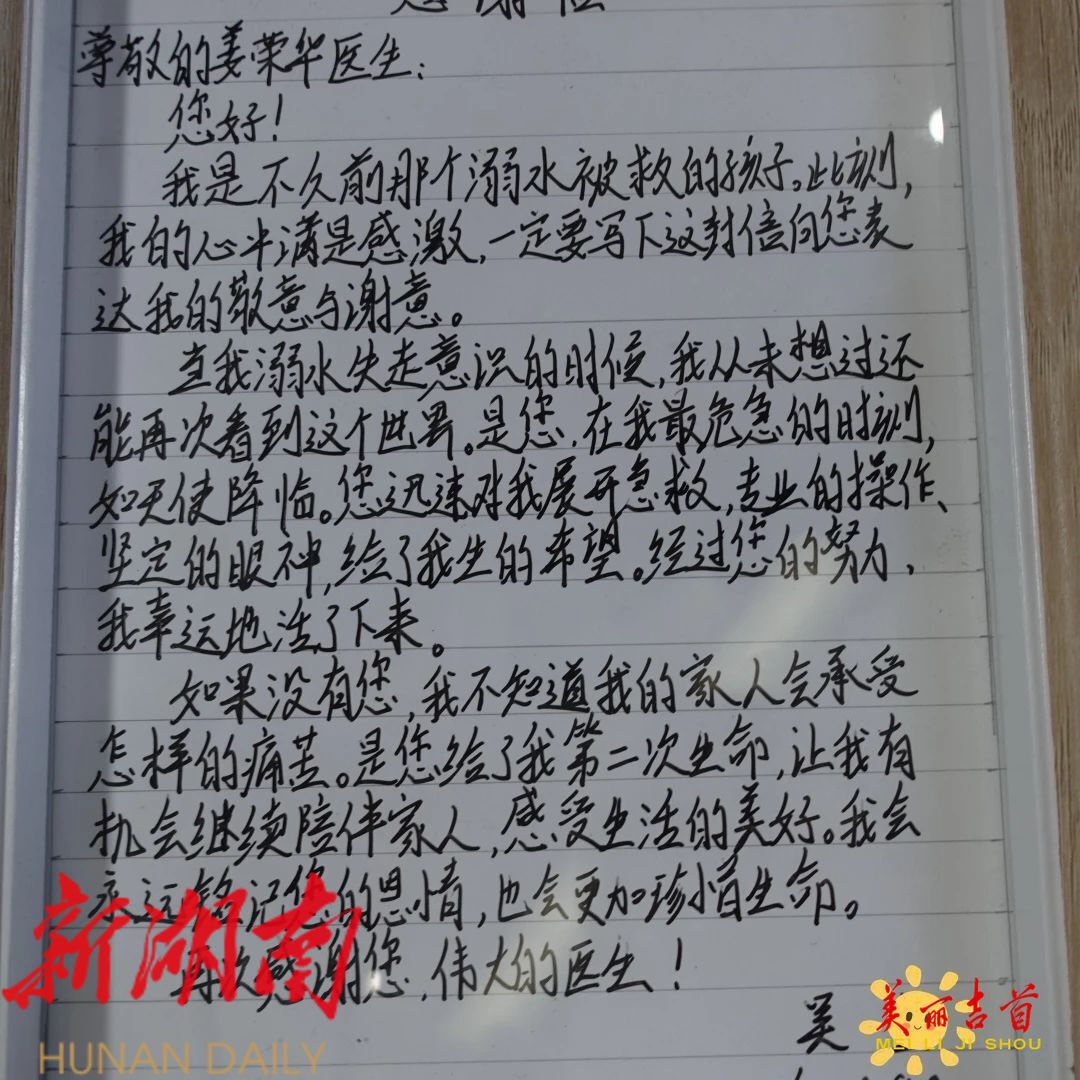 感谢信
尊敬的姜荣华医生：
您好！
我是不久前那个溺水被救的孩子。此刻，
我的心中满是感激，一定要写下这封信向您表
达我的敬意与谢意。
当我溺水失去意识的时候，我从未想过还
能再次看到这个世界。是您，在我最危急的时刻，
如天使降临。您迅速对我展开急救，专业的操作、
坚定的眼神，给了我生的希望。经过您的努力，
我幸运地活了下来。
如果没有您，我不知道我的家人会承受
怎样的痛苦。是您给了我第二次生命，让我有
机会继续陪伴家人，感受生活的美好。我会
永远铭记您的恩情，也会更加珍惜生命。
再次感谢您，伟大的医生！
吴
新湖南
HUNAN DAILY
美丽吉首
MEI LI JI SHOU